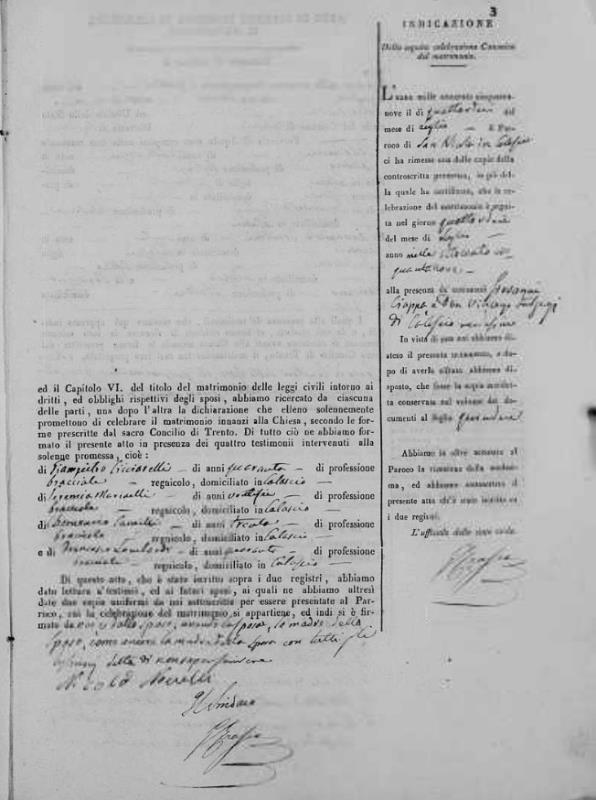 3
INDICAZIONE
Della seguita celebrazione Canonica
del matrimonio.
L'anno mille ottocento cinquanta-
nove il dì quattordici del
mese di Luglio — il Par-
roco di San Nicola in Calascio
ci ha rimesso una delle copie della
controscritta promessa, in piè del-
la quale ha certificato, che la ce-
lebrazione del matrimonio è segui-
ta nel giorno quattordici
del mese di Luglio —
anno mille ottocento cin
quantanove —
alla presenza de' testimonj Giovanni
e Don
di Calascio
In vista di essa noi abbiamo di-
steso il presente notamento, e do-
po di averlo cifrato abbiamo di-
sposto, che fosse la copia anzidet-
ta conservata nel volume dei do-
cumenti al foglio
Abbiamo in oltre accusato al
Parroco la ricezione della medesi-
ma, ed abbiamo sottoscritto il
presente atto ch'è stato inscritto su
i due registri.
L'uffiziale dello stato civile.
ed il Capitolo VI. del titolo del matrimonio delle leggi civili intorno ai
dritti, ed obblighi rispettivi degli sposi, abbiamo ricercato da ciascuna
delle parti, una dopo l'altra la dichiarazione che elleno solennemente
promettono di celebrare il matrimonio innanzi alla Chiesa, secondo le for-
me prescritte dal sacro Concilio di Trento. Di tutto ciò ne abbiamo for-
mato il presente atto in presenza dei quattro testimonii intervenuti alla
solenne promessa, cioè:
di — di anni quaranta — di professione
bracciale — regnicolo, domiciliato in Calascio —
di Geremia — di anni — di professione
bracciale — regnicolo, domiciliato in Calascio —
di — di anni trenta — di professione
bracciale regnicolo, domiciliato in Calascio —
e di Francesco — di anni quaranta — di professione
bracciale — regnicolo, domiciliato in Calascio —
Di questo atto, che è stato inscritto sopra i due registri, abbiamo
dato lettura a' testimonj, ed ai futuri sposi, ai quali ne abbiamo altresì
date due copie uniformi da noi sottoscritte per essere presentate al Par-
roco, cui la celebrazione del matrimonio si appartiene, ed indi si è fir-
mato da noi e dallo sposo, avendo la sposa, la madre dello
sposo, come ancora la madre della sposa con tutti gli
detto di non saper scrivere
Nicola
Il Sindaco